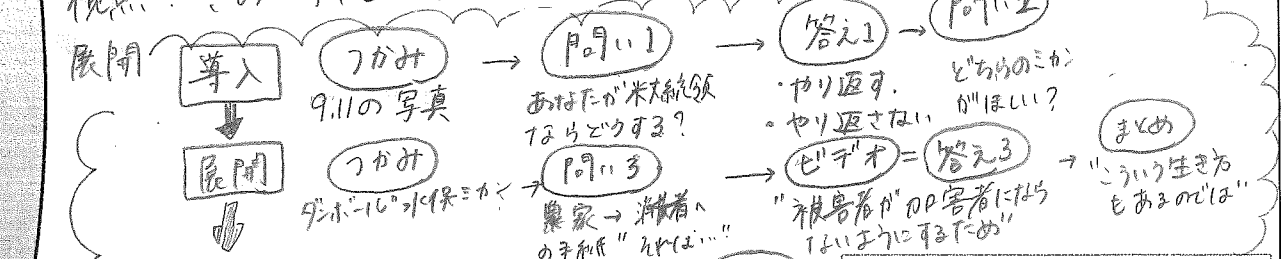 展開
導入
つかみ
9.11の写真
→
問い1
あなたが米大統領
ならどうする?
→
答え1
・やり返す.
・やり返さない
→
問い2
どちらのミカン
がほしい?
展開
つかみ
ダンボール"水俣ミカン"
→
問い3
農家→消費者へ
の手紙"それは…"
→
ビデオ=答え3
"被害者が加害者になら
ないようにするため"
→
まとめ
"こういう生き方
もあるのでは"